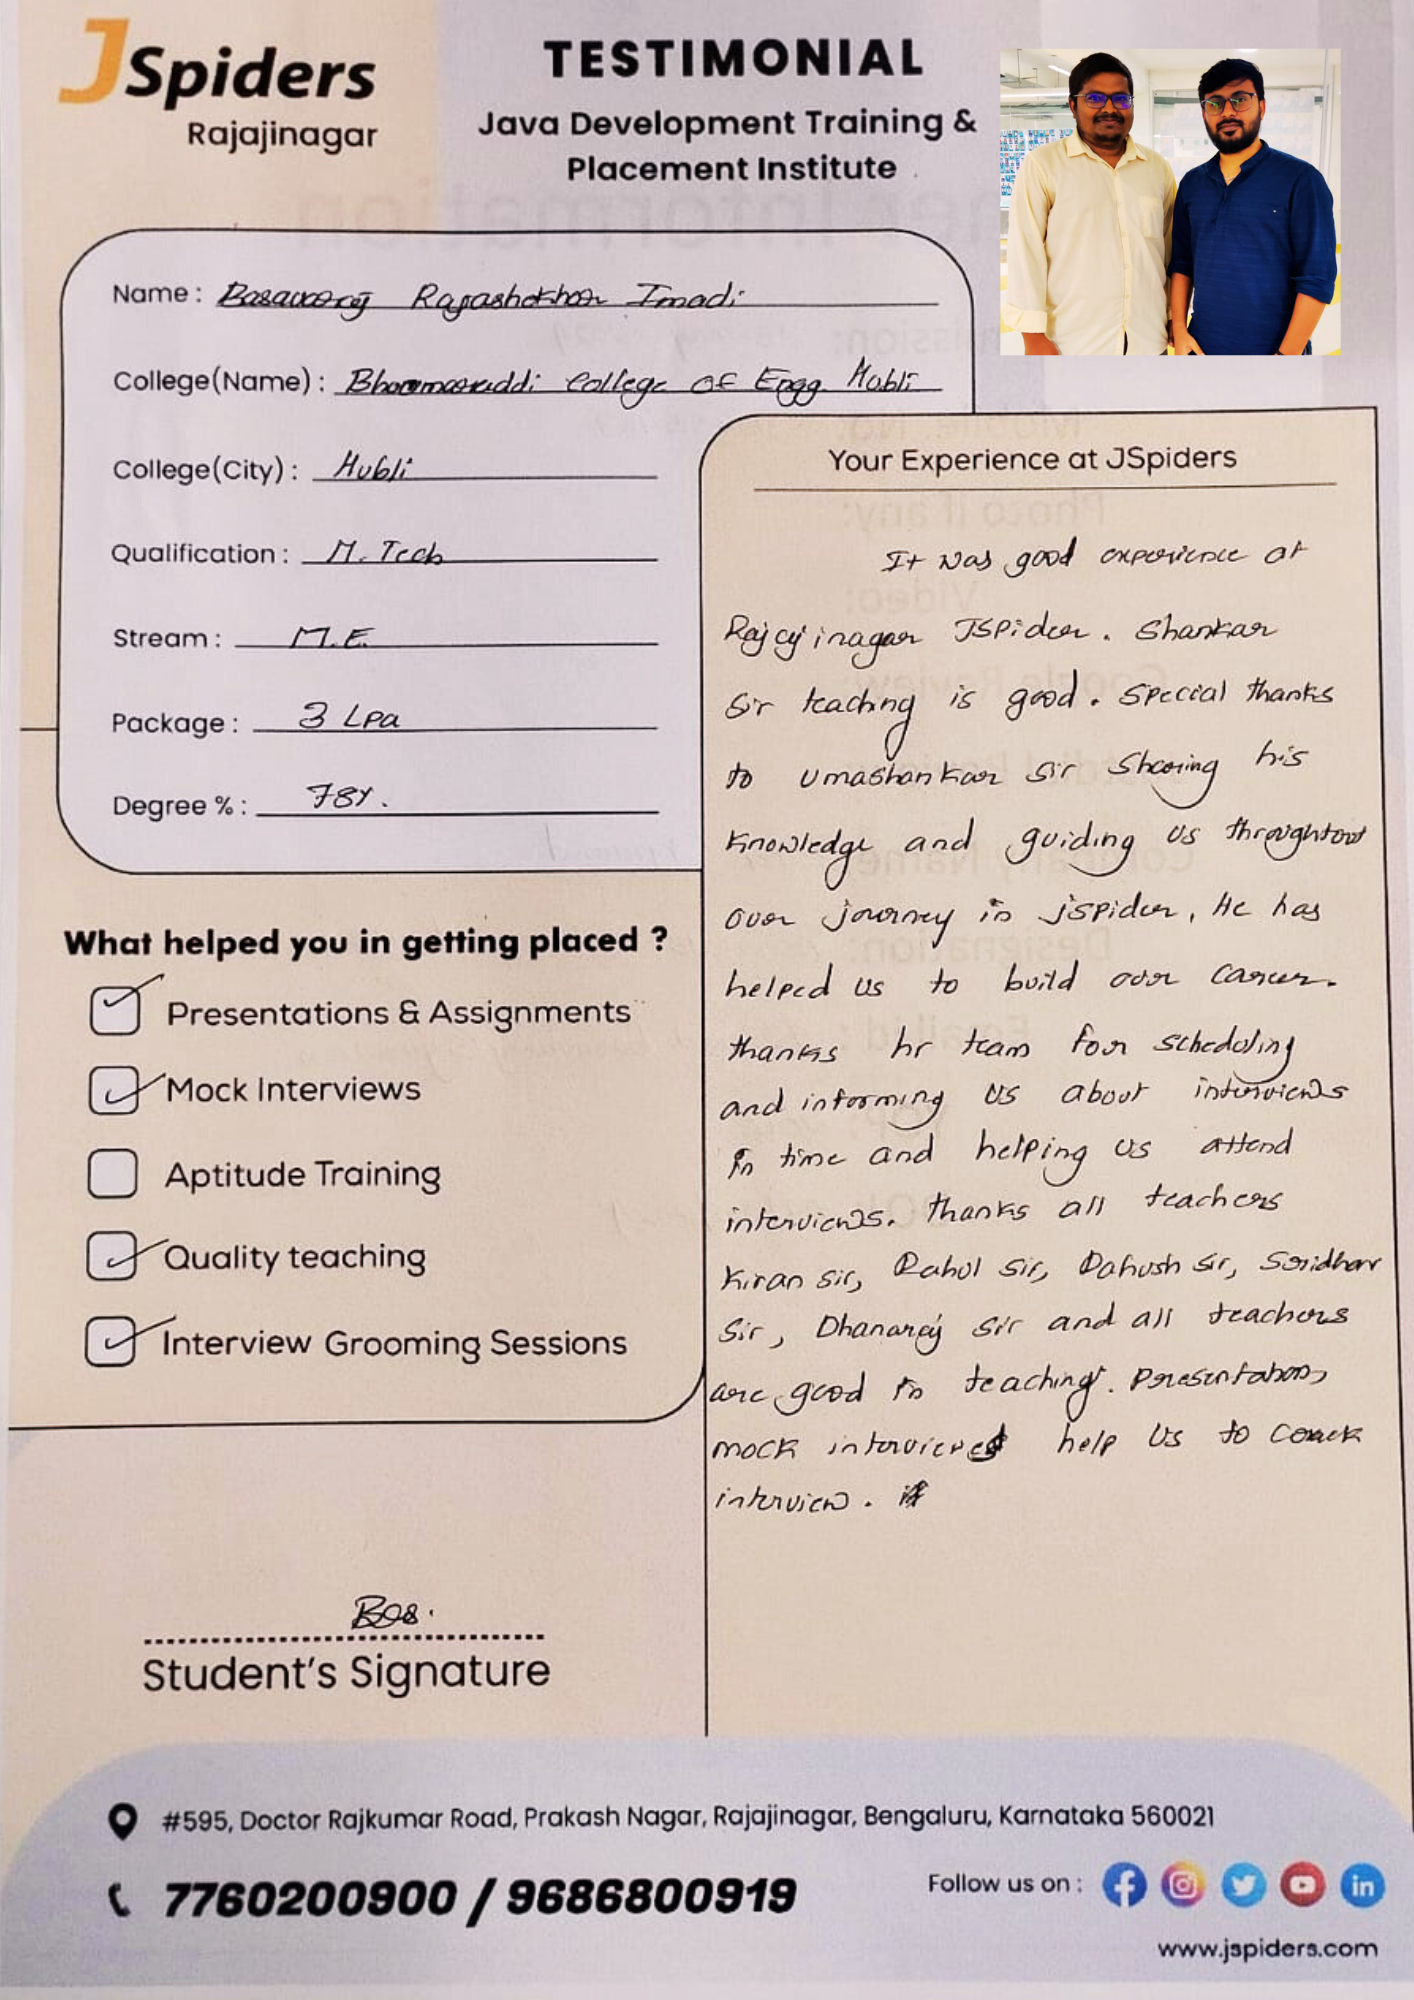 JSpiders
Rajajinagar
TESTIMONIAL
Java Development Training &
Placement Institute
Name : Basavaraj Rajashekhar Imadi
College(Name) : Bhoomaraddi College of Engg. Hubli
College(City) : Hubli
Qualification : M. Tech
Stream : M.E.
Package : 3 Lpa
Degree % : 78%.
What helped you in getting placed ?
Presentations & Assignments
Mock Interviews
Aptitude Training
Quality teaching
Interview Grooming Sessions
Bas.
Student's Signature
Your Experience at JSpiders
It was good experience at
Rajajinagar JSpider. Shankar
Sir teaching is good. Special thanks
to Umashankar Sir Sharing his
knowledge and guiding us throughtout
our journey in jspider, He has
helped us to build our career.
thanks hr team for scheduling
and informing us about interviews
in time and helping us attend
interviews. thanks all teachers
Kiran sir, Rahul sir, Sridhar
Sir, Dhanaraj Sir and all teachers
are good in teaching. Presentations,
mock interviews help us to crack
interview.
#595, Doctor Rajkumar Road, Prakash Nagar, Rajajinagar, Bengaluru, Karnataka 560021
7760200900 / 9686800919
Follow us on :
www.jspiders.com